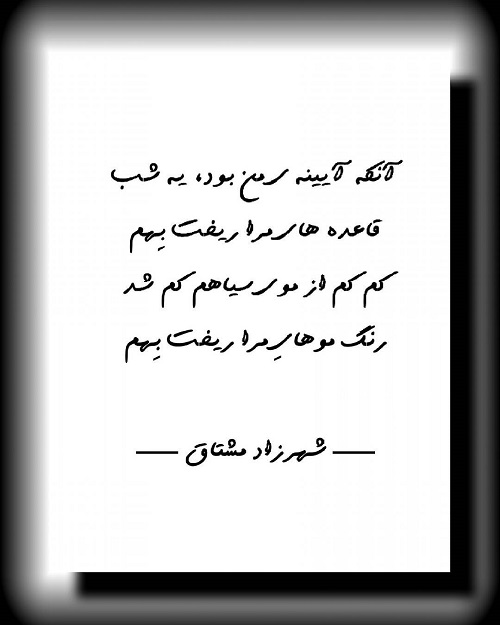 آنکه آیینه ی من بود، یه شب
قاعده های مرا ریخت بِهم
کم کم از موی سیاهم کم شد
رنگ موهایِ مرا ریخت بِهم
شهرزاد مشتاق